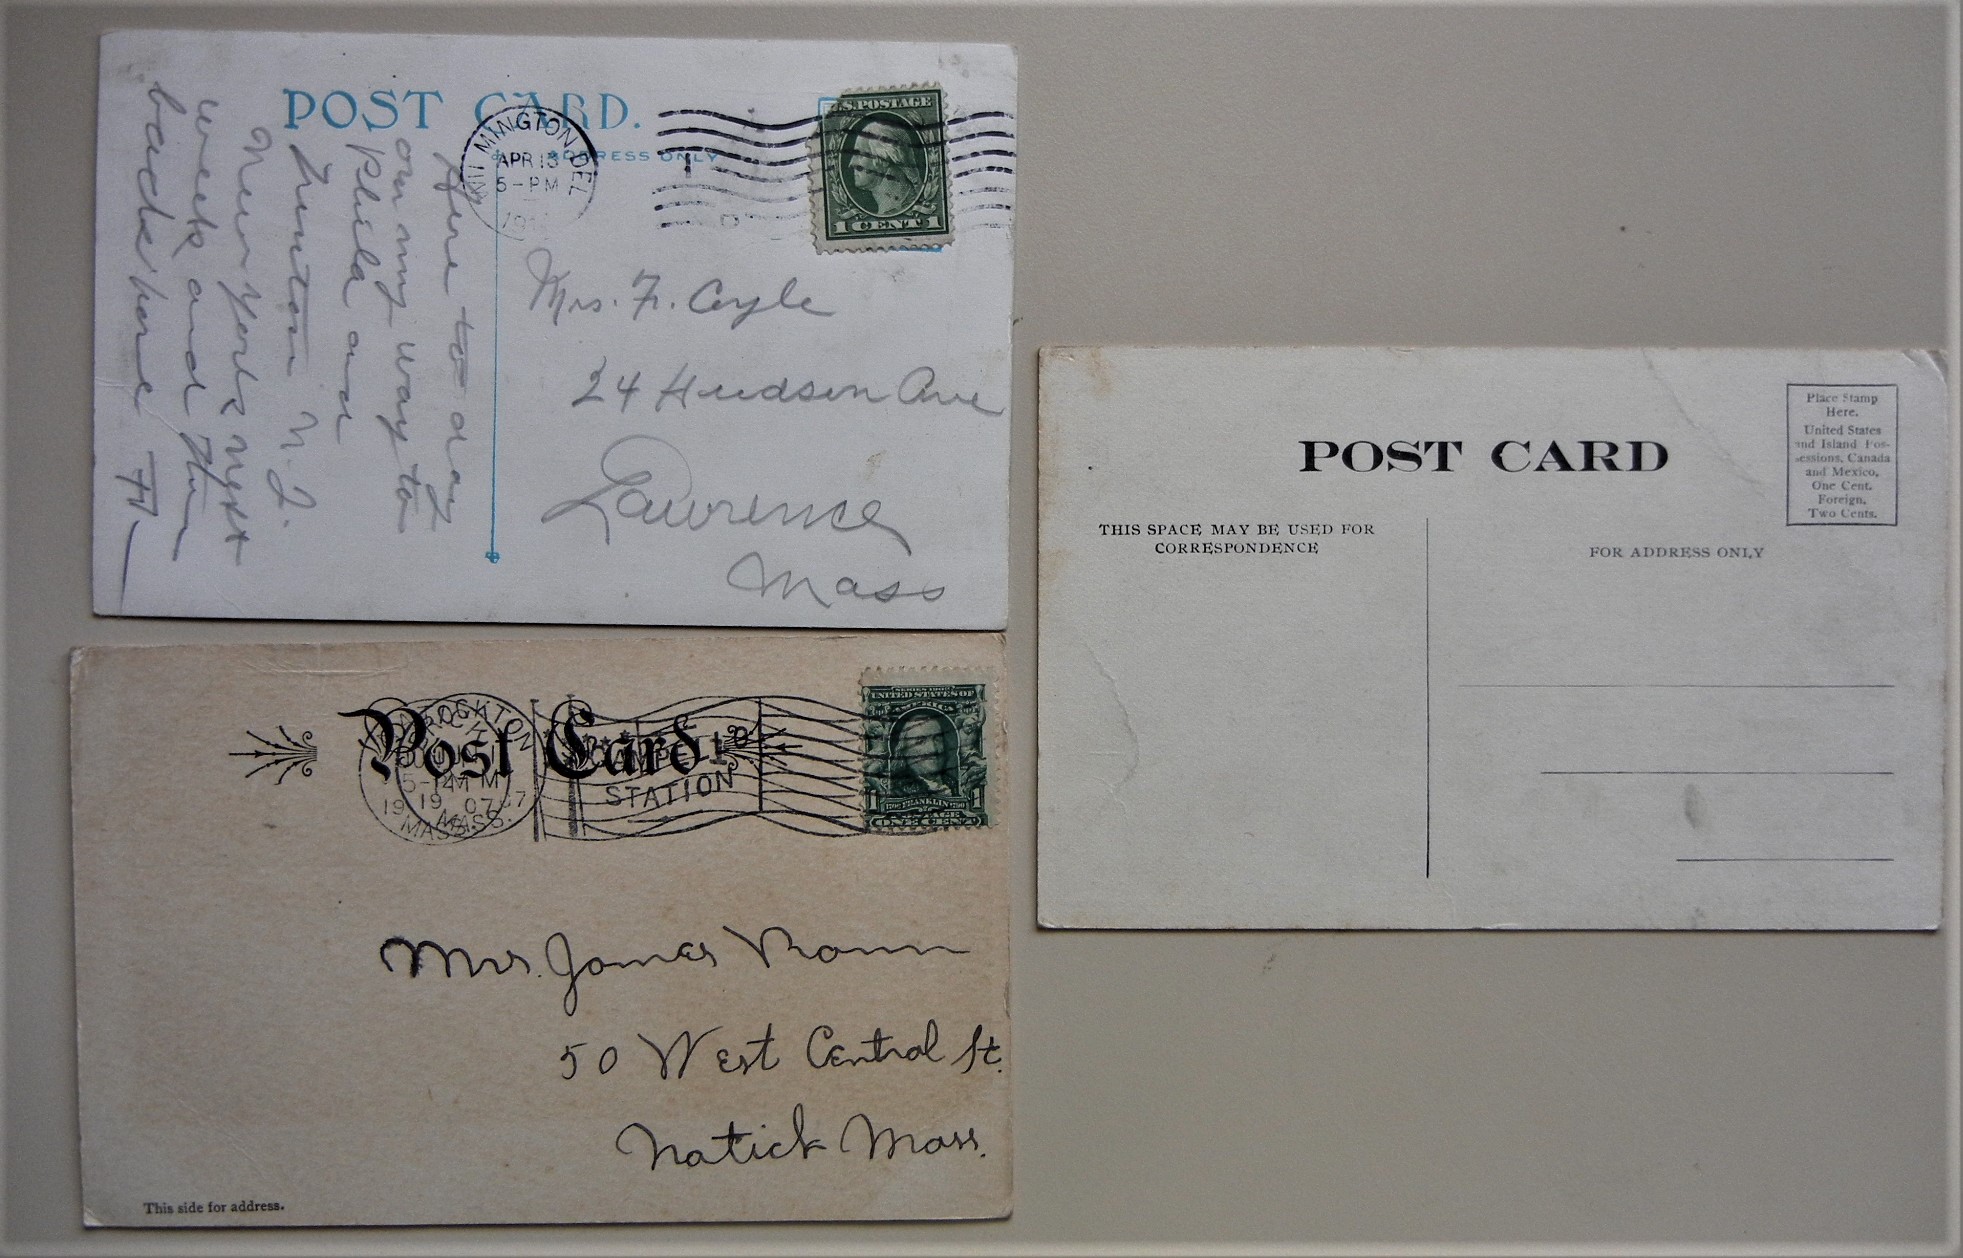 POST CARD.
ADDRESS ONLY
WILMINGTON DEL
APR 13
5-PM
U.S. POSTAGE
1 CENT 1
Here to day
on my way to
Phila and
Trenton N.J.
New York next
week and then
back here
F—
Mrs. F. Coyle
24 Hudson Ave
Lawrence
Mass
Post Card.
BROCKTON
MASS.
STATION
SERIES 1902
UNITED STATES OF
AMERICA
1 FRANKLIN 1
POSTAGE
ONE CENT
Mrs. James
50 West Central St.
Natick Mass.
This side for address.
POST CARD
Place Stamp
Here.
United States
and Island Pos-
sessions, Canada
and Mexico,
One Cent.
Foreign,
Two Cents.
THIS SPACE MAY BE USED FOR
CORRESPONDENCE
FOR ADDRESS ONLY